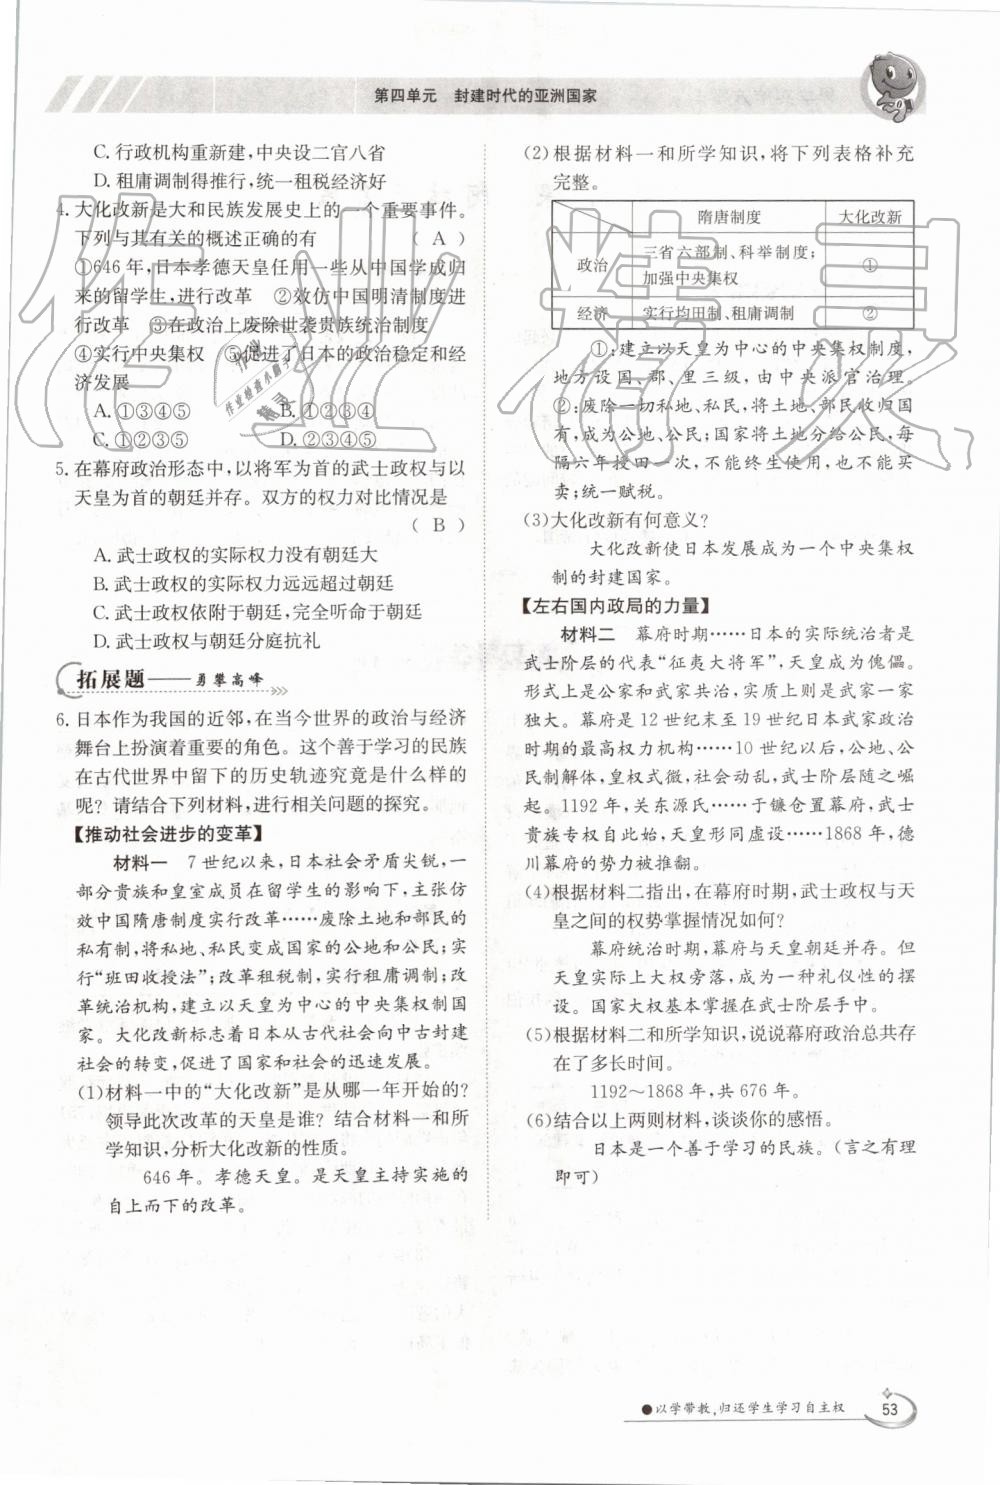 第四单元 封建时代的亚洲国家
C. 行政机构重新建,中央设二官八省
D. 租庸调制得推行,统一租税经济好
4. 大化改新是大和民族发展史上的一个重要事件。
下列与其有关的概述正确的有 ( A )
①646年,日本孝德天皇任用一些从中国学成归
来的留学生,进行改革 ②效仿中国明清制度进
行改革 ③在政治上废除世袭贵族统治制度
④实行中央集权 ⑤促进了日本的政治稳定和经
济发展
A. ①③④⑤ B. ①②③④
C. ①②③⑤ D. ②③④⑤
5. 在幕府政治形态中,以将军为首的武士政权与以
天皇为首的朝廷并存。双方的权力对比情况是
( B )
A. 武士政权的实际权力没有朝廷大
B. 武士政权的实际权力远远超过朝廷
C. 武士政权依附于朝廷,完全听命于朝廷
D. 武士政权与朝廷分庭抗礼
拓展题——勇攀高峰
6. 日本作为我国的近邻,在当今世界的政治与经济
舞台上扮演着重要的角色。这个善于学习的民族
在古代世界中留下的历史轨迹究竟是什么样的
呢? 请结合下列材料,进行相关问题的探究。
【推动社会进步的变革】
材料一 7世纪以来,日本社会矛盾尖锐,一
部分贵族和皇室成员在留学生的影响下,主张仿
效中国隋唐制度实行改革……废除土地和部民的
私有制,将私地、私民变成国家的公地和公民;实
行“班田收授法”;改革租税制,实行租庸调制;改
革统治机构,建立以天皇为中心的中央集权制国
家。大化改新标志着日本从古代社会向中古封建
社会的转变,促进了国家和社会的迅速发展。
(1)材料一中的“大化改新”是从哪一年开始的?
领导此次改革的天皇是谁? 结合材料一和所
学知识,分析大化改新的性质。
646年。孝德天皇。是天皇主持实施的
自上而下的改革。
(2)根据材料一和所学知识,将下列表格补充
完整。
隋唐制度 大化改新
政治 三省六部制、科举制度; ①
加强中央集权
经济 实行均田制、租庸调制 ②
①:建立以天皇为中心的中央集权制度,
地方设国、郡、里三级,由中央派官治理。
②:废除一切私地、私民,将土地、部民收归国
有,成为公地、公民;国家将土地分给公民,每
隔六年授田一次,不能终生使用,也不能买
卖;统一赋税。
(3)大化改新有何意义?
大化改新使日本发展成为一个中央集权
制的封建国家。
【左右国内政局的力量】
材料二 幕府时期……日本的实际统治者是
武士阶层的代表“征夷大将军”,天皇成为傀儡。
形式上是公家和武家共治,实质上则是武家一家
独大。幕府是12世纪末至19世纪日本武家政治
时期的最高权力机构……10世纪以后,公地、公
民制解体,皇权式微,社会动乱,武士阶层随之崛
起。1192年,关东源氏……于镰仓置幕府,武士
贵族专权自此始,天皇形同虚设……1868年,德
川幕府的势力被推翻。
(4)根据材料二指出,在幕府时期,武士政权与天
皇之间的权势掌握情况如何?
幕府统治时期,幕府与天皇朝廷并存。但
天皇实际上大权旁落,成为一种礼仪性的摆
设。国家大权基本掌握在武士阶层手中。
(5)根据材料二和所学知识,说说幕府政治总共存
在了多长时间。
1192~1868年,共676年。
(6)结合以上两则材料,谈谈你的感悟。
日本是一个善于学习的民族。(言之有理
即可)
●以学带教,归还学生学习自主权 53
作业精灵